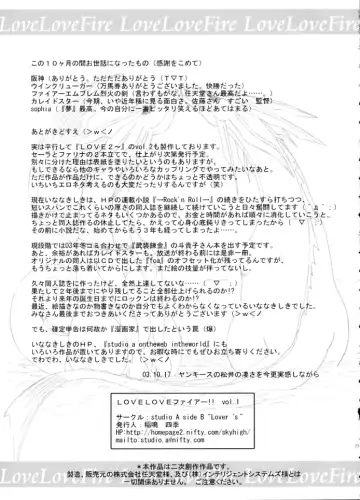 LoveLoveFire LoveLoveFire LoveLoveFire
この10ヶ月の間お世話になったもの(感謝をこめて)
阪神(ありがとう、ただただありがとう(T▽T)
ウインクリューガー(万馬券ありがとうございました。快勝だった)
ファイアーエムブレム烈火の剣(言わずもがな、任天堂さん最高だよ……。)
カレイドスター(今期、いや近年稀に見る面白さ、佐藤さん すごい 監督)
sophia(『夢』最高、今の自分に一番ピッタリ笑えるほどあてはまる)
あとがきどすえ(>wく/
実は平行して『LOVE2~』のvol.2も製作しております。
セーラとファリナの2本立てで、仕上がり次第発行予定。
別々に分けた理由は悪紙を塗りたいというのもあるんですが、
もしできるなら他のキャラやいろいろなカップリングでやってみたいなあと。
ただ作品が作品だけに、できるのかどうかはちょっと不透明です。
いちいちエロネタ考えるのも大変だったりするんですが(笑)
現在いななきしきは、HPの連載小説『―Rock'n Roll―』の続きをひたすら打ちつつ、
短いスパンでこれくらいの厚さの同人誌を継続して続けていこうと日々奮闘してます(´д`;)
描きかけで止まってるネタもいくつかあるので、お金と時間があれば順々に消化していこうと、
ちょっと同人作るの休止してたら、かえって心身の底純してきってしまったから(´▽`;)
その前に小説だな、始めてからもう3年も経ってしまったよ……
現段階では03年冬コミ合わせで『武装錬金』の斗貴子さん本を出す予定です。
あと、余裕があればカレイドスターも、放送が終わる前には是非一冊。
オリジナルの同人誌はUCOで出した『foa』のオフセット化が残ってるんですが、
もうちょっと落ち着いてからにします。まだ絵の技量が伴ってません。
久々同人誌を作ったけど、全然上達してないな……(´▽`;)
果たして2年後までにやり残してること全部仕上げられるのか!?
それより来年の誕生日までにロックンは終わるのか!?
最近、絵描きなのか物書きなのか自分でもよくわからなくなっているいななきしきですが、
ここまで読んでいただきまことにあいがださってありがとうございます(>wく/
でも、確定申告は何故か『漫画家』で出したという罠(爆)
いななきしきのHP、『studio a ontheweb intheworld』にも
いろいろ置いてありますので、お暇な時にでもぜひおこしください。
でわでわ、いななきしきでした。
03.10.17 ヤンキースの松井の凄さを今更実感しながら
LOVELOVEファイアー!! vol.1
サークル:studio A side B "Lover's"
発行人:稲鳴 四季
HP:http://homepage2.nifty.com/skyhigh/
*本作品は二次創作作品です。
製造、販売元の株式会社任天堂様、及び(株)インテリジェントシステムズ様とは
一切関係ありません。ご注意ください。
LoveLoveFire LoveLoveFire LoveLoveFire